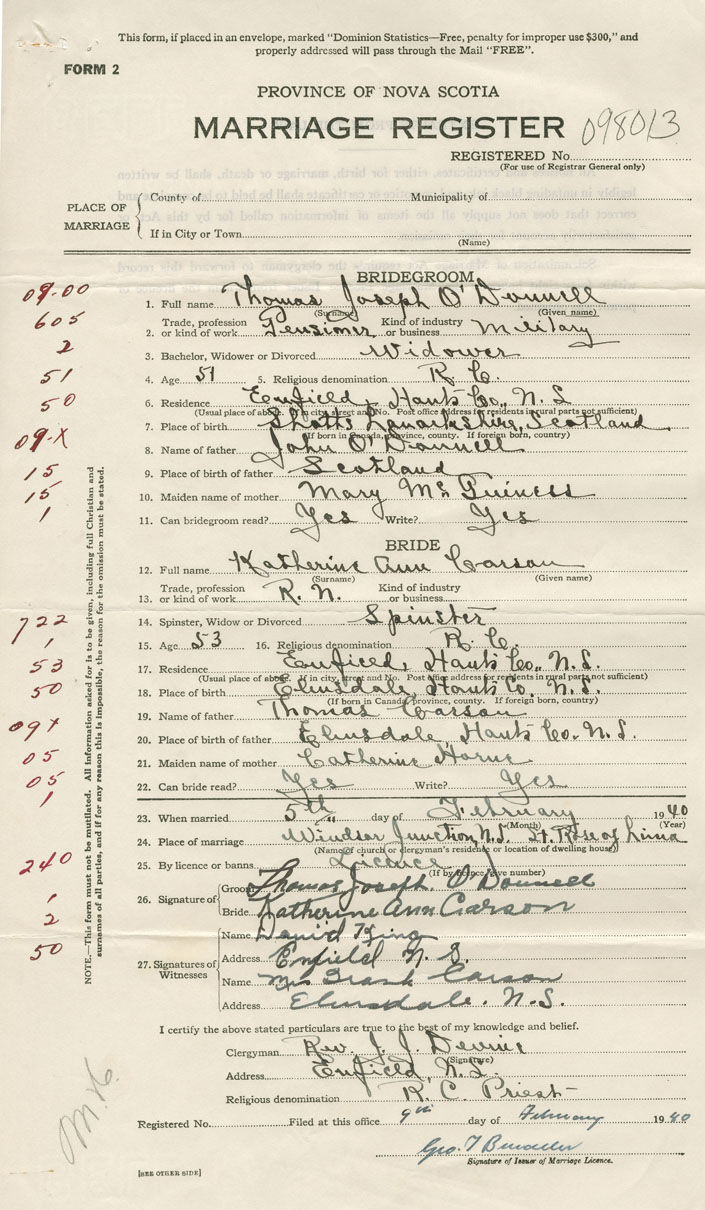 This form, if placed in an envelope, marked "Dominion Statistics—Free, penalty for improper use $300," and
properly addressed will pass through the Mail "FREE".
FORM 2
PROVINCE OF NOVA SCOTIA
MARRIAGE REGISTER 098013
REGISTERED No.
(For use of Registrar General only)
PLACE OF MARRIAGE
County of Municipality of
If in City or Town
(Name)
BRIDEGROOM
09.00
1. Full name Thomas Joseph O'Donnell
(Surname) (Given name)
605
2. Trade, profession or kind of work Pensioner Kind of industry or business Military
2
3. Bachelor, Widower or Divorced Widower
51
4. Age 51 5. Religious denomination R. C.
50
6. Residence Enfield, Hants Co., N. S.
(Usual place of abode. If in city, street and No. Post office address for residents in rural parts not sufficient)
09-X
7. Place of birth Shotts Lanarkshire, Scotland
(If born in Canada, province, county. If foreign born, country)
8. Name of father John O'Donnell
15
9. Place of birth of father Scotland
15
10. Maiden name of mother Mary McGuiness
1
11. Can bridegroom read? Yes Write? Yes
BRIDE
12. Full name Katherine Ann Carson
(Surname) (Given name)
13. Trade, profession or kind of work R. N. Kind of industry or business
722
14. Spinster, Widow or Divorced Spinster
1
15. Age 53 16. Religious denomination R. C.
53
17. Residence Enfield, Hants Co., N. S.
(Usual place of abode. If in city, street and No. Post office address for residents in rural parts not sufficient)
50
18. Place of birth Elmsdale, Hants Co. N. S.
(If born in Canada, province, county. If foreign born, country)
09X
19. Name of father Thomas Carson
20. Place of birth of father Elmsdale, Hants Co. N. S.
05
21. Maiden name of mother Catherine Horne
05
22. Can bride read? Yes Write? Yes
1
23. When married 5th day of February 1940
(Month) (Year)
24. Place of marriage Windsor Junction, N.S. St. Rose of Lima
(Name of church or clergyman's residence or location of dwelling house)
240
25. By licence or banns Licence
(If by licence give number)
1
26. Signature of
Groom Thomas Joseph O'Donnell
2
Bride Katherine Ann Carson
50
27. Signatures of Witnesses
Name David
Address Enfield N. S.
Name Mrs Frank Carson
Address Elmsdale. N.S.
NOTE.—This form must not be mutilated. All information asked for is to be given, including full Christian and
surnames of all parties, and if for any reason this is impossible, the reason for the omission must be stated.
I certify the above stated particulars are true to the best of my knowledge and belief.
Clergyman Rev. J. J. Devine
(Signature)
Address Enfield, N.S.
Religious denomination R. C. Priest
Registered No. Filed at this office 9th day of February 1940
Geo. T
Signature of Issuer of Marriage Licence.
[SEE OTHER SIDE]